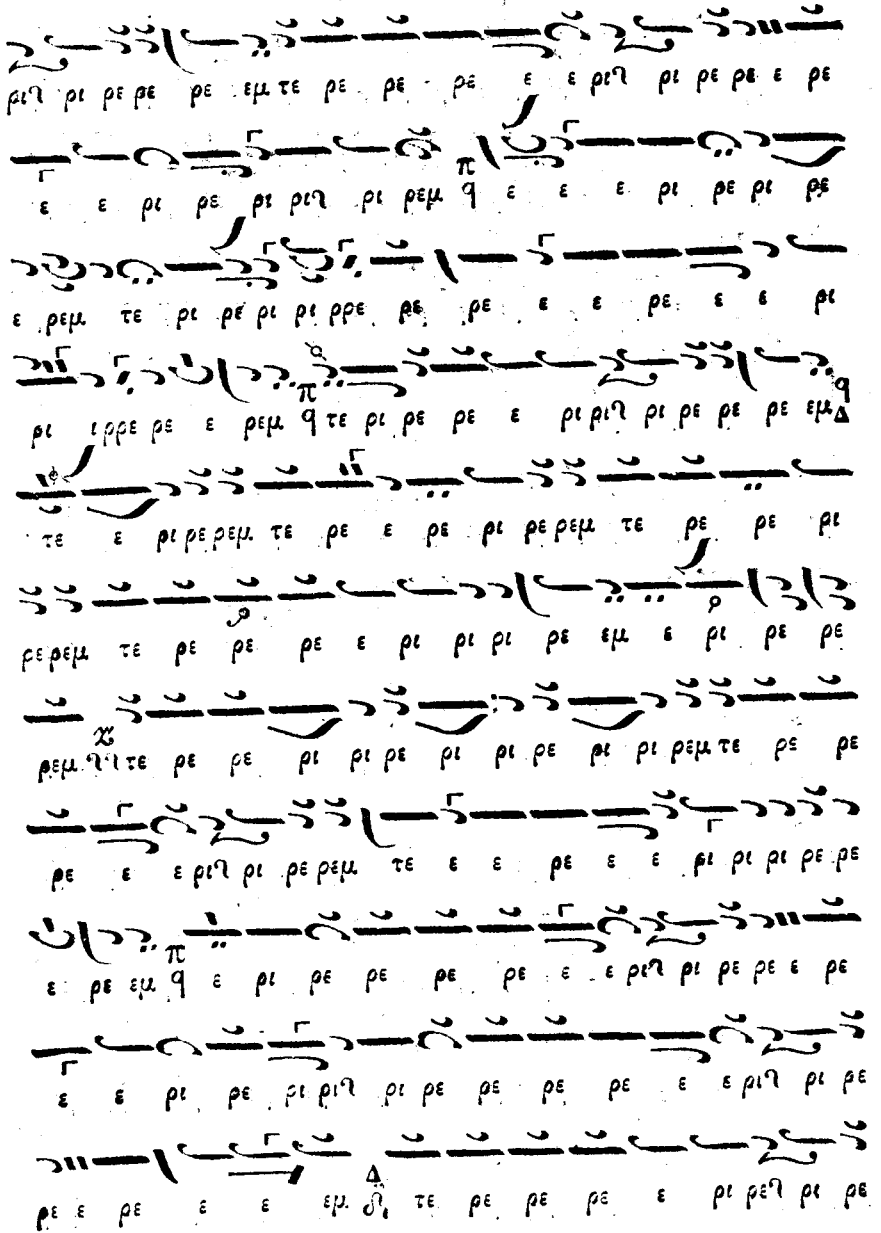 ριϞ ρι ρε ρε ρε εμ τε ρε ρε ρε ε ε ριϞ ρι ρε ρε ε ρε
ε ε ρι ρε ρι ριϞ ρι ρεμ π q ε ε ε ρι ρε ρι ρε
ε ρεμ τε ρι ρε ρι ρι ρρε ρε ρε ε ε ρε ε ε ρι
ρι ι ρρε ρε ε ρεμ π q τε ρι ρε ρε ε ρι ριϞ ρι ρε ρε ρε εμ q Δ
τε ε ρι ρε ρεμ τε ρε ε ρε ρι ρε ρεμ τε ρε ρε ρι
ρε ρεμ τε ρε ρε ρε ε ρι ρι ρι ρε εμ ε ρι ρε ρε
ρεμ τε ρε ρε ρι ρι ρε ρι ρι ρε ρι ρι ρεμ τε ρε ρε
ρε ε ε ριϞ ρι ρε ρεμ τε ε ε ρε ε ε ρι ρι ρι ρε ρε
ε ρε εμ π q ε ρι ρε ρε ρε ρε ε ε ριϞ ρι ρε ρε ε ρε
ε ε ρι ρε ρι ριϞ ρι ρε ρε ρε ρε ε ε ριϞ ρι ρε
ρε ε ρε ε ε εμ Δ τε ρε ρε ρε ε ρι ρεϞ ρι ρε